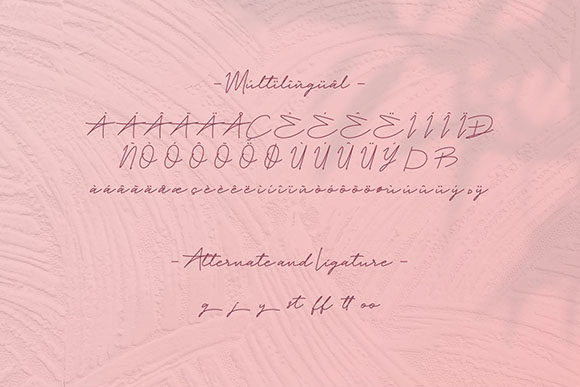 - Multilingual -
À Á Â Ã Ä Å Ç È É Ê Ë Ì Í Î Ï Ð
Ñ Ò Ó Ô Õ Ö Ø Ù Ú Û Ü Ý D B
à á â ã ä å æ ç è é ê ë ì í î ï ñ ò ó ô õ ö ø ù ú û ü ý þ ÿ
- Alternate and Ligature -
g j y st ff tt oo